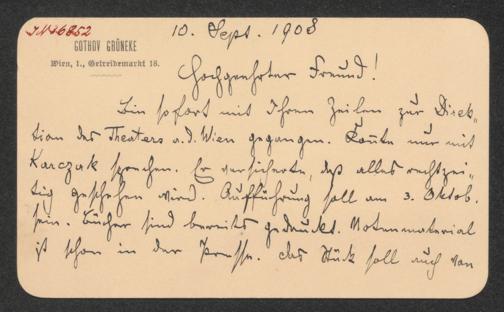 JN 46852
GOTHOV GRÜNEKE
Wien, 1., Getreidemarkt 18.
10. Sept. 1908
Hochgeehrter Freund!
Bin sofort mit Ihren Zeilen zur Direk-
tion des Theaters a.d. Wien gegangen. Konnte nur mit
Karczak sprechen. Er versicherte, daß alles rechtzei-
tig geschehen wird. Aufführung soll am 3. Oktob.
sein. Bücher sind bereits gedruckt. Notenmaterial
ist schon in der Presse. Das Stück soll auch von